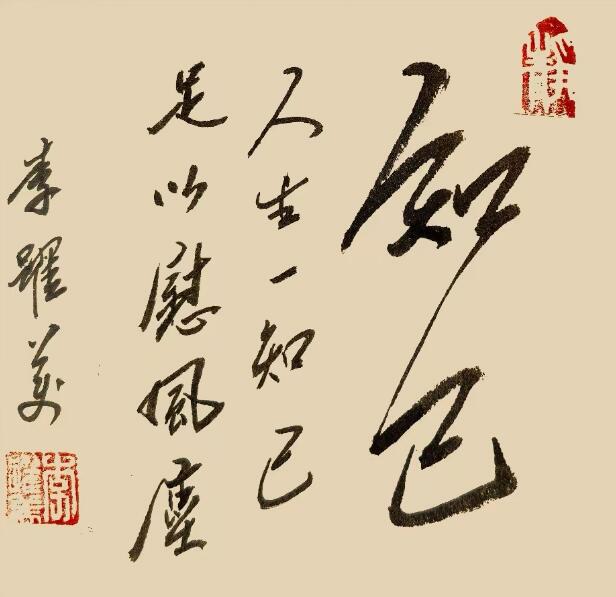 知己
人生一知己
足以慰風塵
李躍美